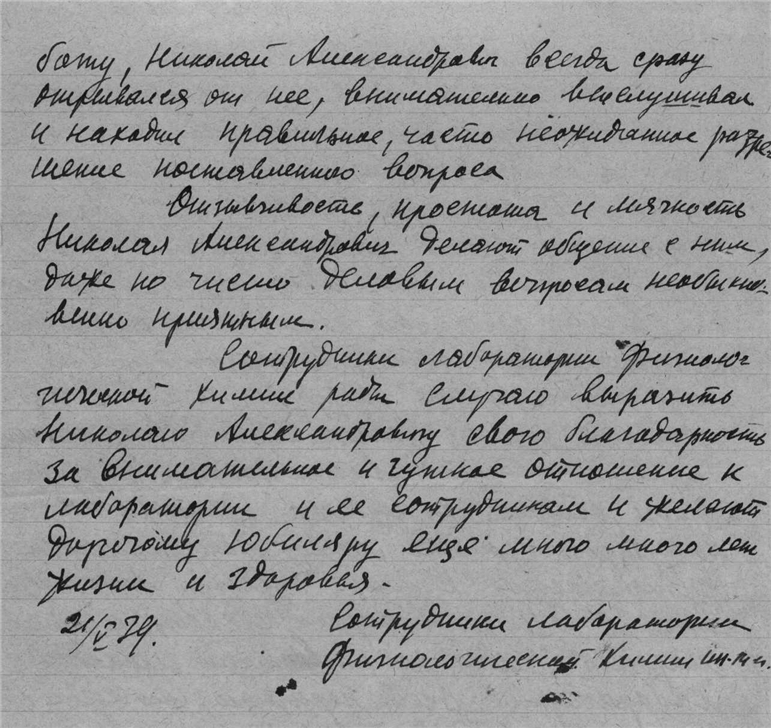 боту, Николай Александрович всегда сразу
отрывался от нее, внимательно выслушивал
и находил правильное, часто неожиданное разре-
шение поставленного вопроса
Отзывчивость, простота и мягкость
Николая Александровича делают общение с ним,
даже по чисто деловым вопросам необыкно-
венно приятным.
Сотрудники лаборатории физиоло-
гической химии рады случаю выразить
Николаю Александровичу свою благодарность
за внимательное и чуткое отношение к
лаборатории и ее сотрудникам и желают
дорогому юбиляру еще много много лет
жизни и здоровья.
21/V 39.
Сотрудники лаборатории
физиологической химии ин-та.